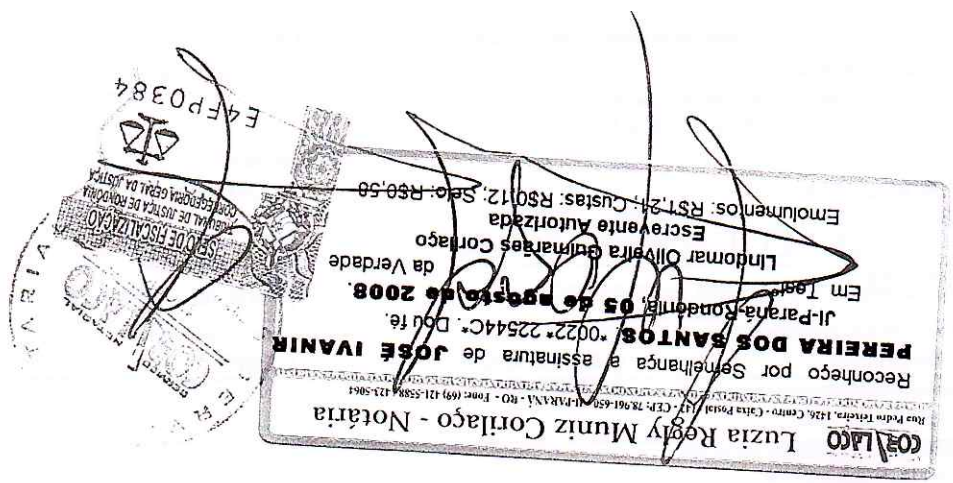 CORILAÇO Luzia Regly Muniz Corilaço - Notária
Rua Pedro Teixeira, 1426, Centro - Caixa Postal 142 - CEP: 78.961-650 JI-PARANÁ - RO - Fone: (69) 421-5588 / 423-5064
Reconheço por Semelhança a assinatura de JOSÉ IVANIR
PEREIRA DOS SANTOS *0022*22544C*. Dou fé.
Ji-Paraná-Rondônia, 05 de agosto de 2008.
Em Testº da Verdade
Lindomar Oliveira Guimarães Corilaço
Escrevente Autorizada
Emolumentos: R$1,21; Custas: R$0,12; Selo: R$0,58
SELO DE FISCALIZAÇÃO
TRIBUNAL DE JUSTIÇA DE RONDÔNIA
CORREGEDORIA GERAL DA JUSTIÇA
E4FP0384